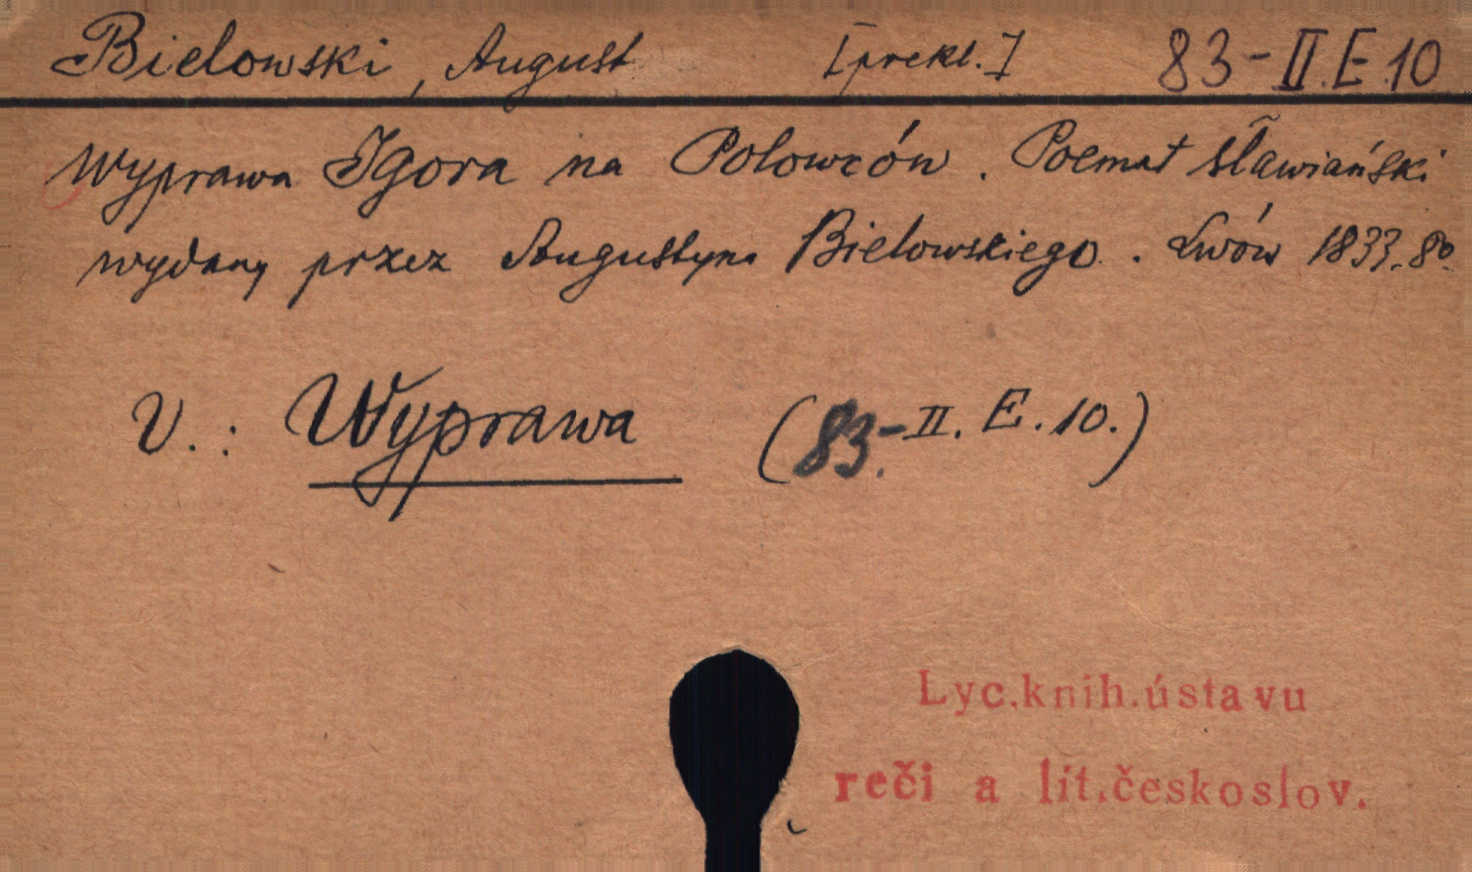 Bielowski, August [prekl.] 83-II.E.10
Wyprawa Igora na Polowców. Poemat sławiański
wydany przez Augustyna Bielowskiego. Lwów 1833. 8º.
V.: Wyprawa (83.-II.E.10.)
Lyc.knih.ústavu
reči a lit.českoslov.